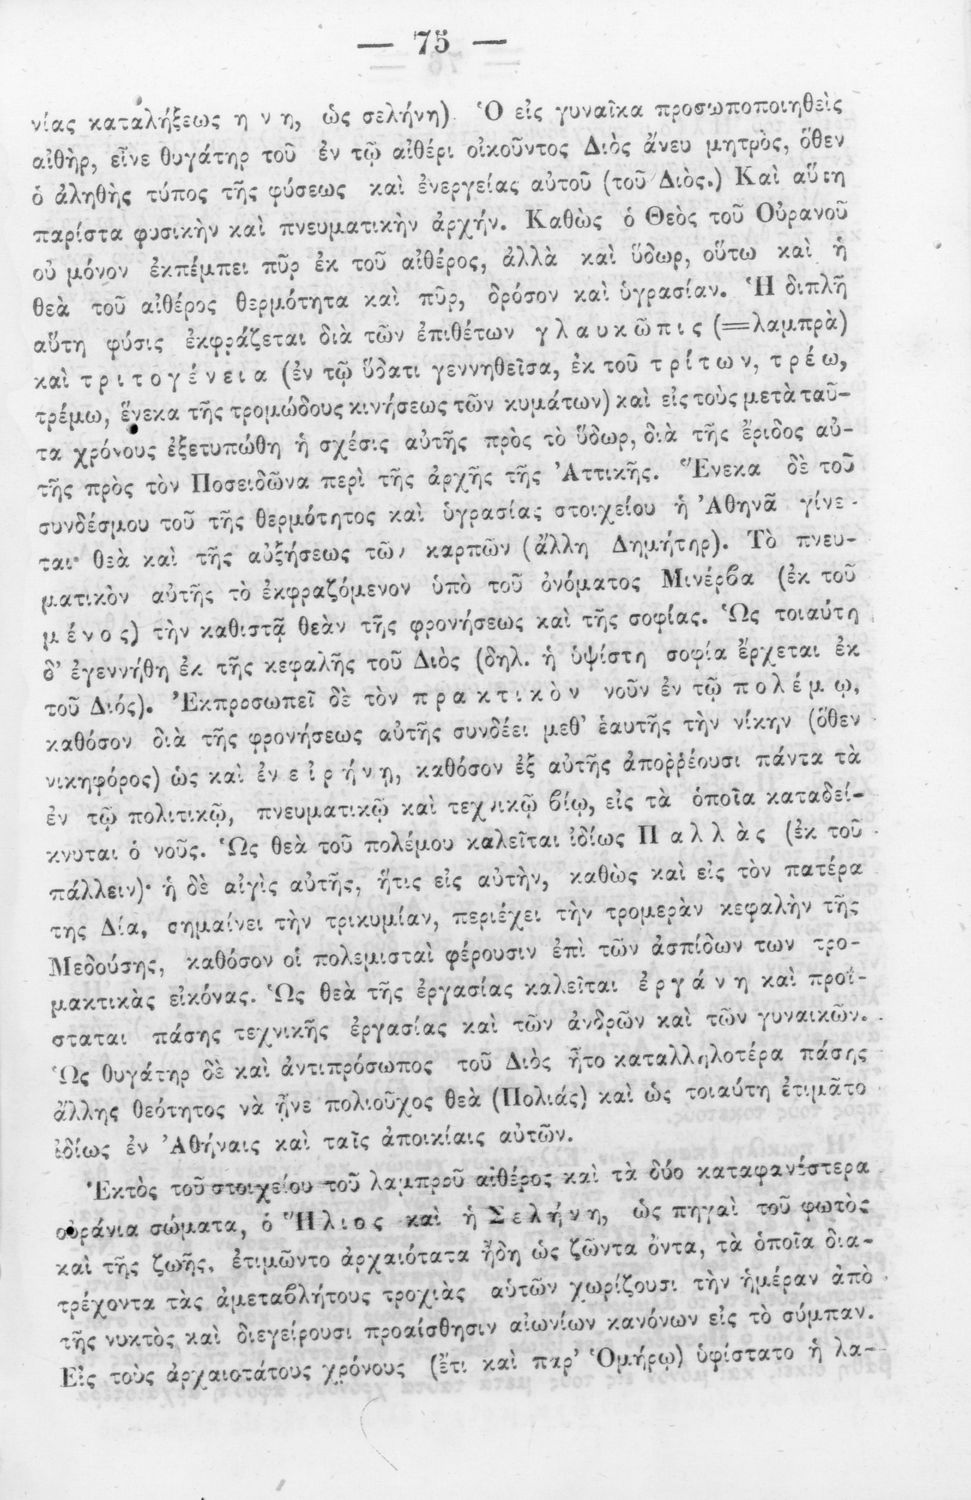 — 75 —
νίας καταλήξεως η ν η, ὡς σελήνη) Ὁ εἰς γυναῖκα προσωποποιηθεὶς
αἰθὴρ, εἶνε θυγάτηρ τοῦ ἐν τῷ αἰθέρι οἰκοῦντος Διὸς ἄνευ μητρὸς, ὅθεν
ὁ ἀληθὴς τύπος τῆς φύσεως καὶ ἐνεργείας αὐτοῦ (τοῦ Διὸς.) Καὶ αὕτη
παρίστα φυσικὴν καὶ πνευματικὴν ἀρχήν. Καθὼς ὁ Θεὸς τοῦ Οὐρανοῦ
οὐ μόνον ἐκπέμπει πῦρ ἐκ τοῦ αἰθέρος, ἀλλὰ καὶ ὕδωρ, οὕτω καὶ ἡ
θεὰ τοῦ αἰθέρος θερμότητα καὶ πῦρ, δρόσον καὶ ὑγρασίαν. Ἡ διπλῆ
αὕτη φύσις ἐκφράζεται διὰ τῶν ἐπιθέτων γ λ α υ κ ῶ π ι ς (=λαμπρὰ)
καὶ τ ρ ι τ ο γ έ ν ε ι α (ἐν τῷ ὕδατι γεννηθεῖσα, ἐκ τοῦ τ ρ ί τ ω ν, τ ρ έ ω,
τρέμω, ἕνεκα τῆς τρομώδους κινήσεως τῶν κυμάτων) καὶ εἰς τοὺς μετὰ ταῦ-
τα χρόνους ἐξετυπώθη ἡ σχέσις αὐτῆς πρὸς τὸ ὕδωρ, διὰ τῆς ἔριδος αὐ-
τῆς πρὸς τὸν Ποσειδῶνα περὶ τῆς ἀρχῆς τῆς Ἀττικῆς. Ἕνεκα δὲ τοῦ
συνδέσμου τοῦ τῆς θερμότητος καὶ ὑγρασίας στοιχείου ἡ Ἀθηνᾶ γίνε-
ται θεὰ καὶ τῆς αὐξήσεως τῶν καρπῶν (ἄλλη Δημήτηρ). Τὸ πνευ-
ματικὸν αὐτῆς τὸ ἐκφραζόμενον ὑπὸ τοῦ ὀνόματος Μινέρβα (ἐκ τοῦ
μ έ ν ο ς) τὴν καθιστᾷ θεὰν τῆς φρονήσεως καὶ τῆς σοφίας. Ὡς τοιαύτη
δ' ἐγεννήθη ἐκ τῆς κεφαλῆς τοῦ Διὸς (δηλ. ἡ ὑψίστη σοφία ἔρχεται ἐκ
τοῦ Διός). Ἐκπροσωπεῖ δὲ τὸν π ρ α κ τ ι κ ὸ ν νοῦν ἐν τῷ π ο λ έ μ ῳ,
καθόσον διὰ τῆς φρονήσεως αὐτῆς συνδέει μεθ' ἑαυτῆς τὴν νίκην (ὅθεν
νικηφόρος) ὡς καὶ ἐν ε ἰ ρ ή ν ῃ, καθόσον ἐξ αὐτῆς ἀποῤῥέουσι πάντα τὰ
ἐν τῷ πολιτικῷ, πνευματικῷ καὶ τεχνικῷ βίῳ, εἰς τὰ ὁποῖα καταδεί-
κνυται ὁ νοῦς. Ὡς θεὰ τοῦ πολέμου καλεῖται ἰδίως Π α λ λ ὰ ς (ἐκ τοῦ
πάλλειν)· ἡ δὲ αἰγὶς αὐτῆς, ἥτις εἰς αὐτὴν, καθὼς καὶ εἰς τὸν πατέρα
της Δία, σημαίνει τὴν τρικυμίαν, περιέχει τὴν τρομερὰν κεφαλὴν τῆς
Μεδούσης, καθόσον οἱ πολεμισταὶ φέρουσιν ἐπὶ τῶν ἀσπίδων των τρο-
μακτικὰς εἰκόνας. Ὡς θεὰ τῆς ἐργασίας καλεῖται ἐ ρ γ ά ν η καὶ προΐ-
σταται πάσης τεχνικῆς ἐργασίας καὶ τῶν ἀνδρῶν καὶ τῶν γυναικῶν.
Ὡς θυγάτηρ δὲ καὶ ἀντιπρόσωπος τοῦ Διὸς ἦτο καταλληλοτέρα πάσης
ἄλλης θεότητος νὰ ἦνε πολιοῦχος θεὰ (Πολιάς) καὶ ὡς τοιαύτη ἐτιμᾶτο
ἰδίως ἐν Ἀθήναις καὶ ταῖς ἀποικίαις αὐτῶν.
Ἐκτὸς τοῦ στοιχείου τοῦ λαμπροῦ αἰθέρος καὶ τὰ δύο καταφανέστερα
οὐράνια σώματα, ὁ Ἥ λ ι ο ς καὶ ἡ Σ ε λ ή ν η, ὡς πηγαὶ τοῦ φωτὸς
καὶ τῆς ζωῆς, ἐτιμῶντο ἀρχαιότατα ἤδη ὡς ζῶντα ὄντα, τὰ ὁποῖα δια-
τρέχοντα τὰς ἀμεταβλήτους τροχιὰς αὑτῶν χωρίζουσι τὴν ἡμέραν ἀπὸ
τῆς νυκτὸς καὶ διεγείρουσι προαίσθησιν αἰωνίων κανόνων εἰς τὸ σύμπαν.
Εἰς τοὺς ἀρχαιοτάτους χρόνους (ἔτι καὶ παρ' Ὁμήρῳ) ὑφίστατο ἡ λα-